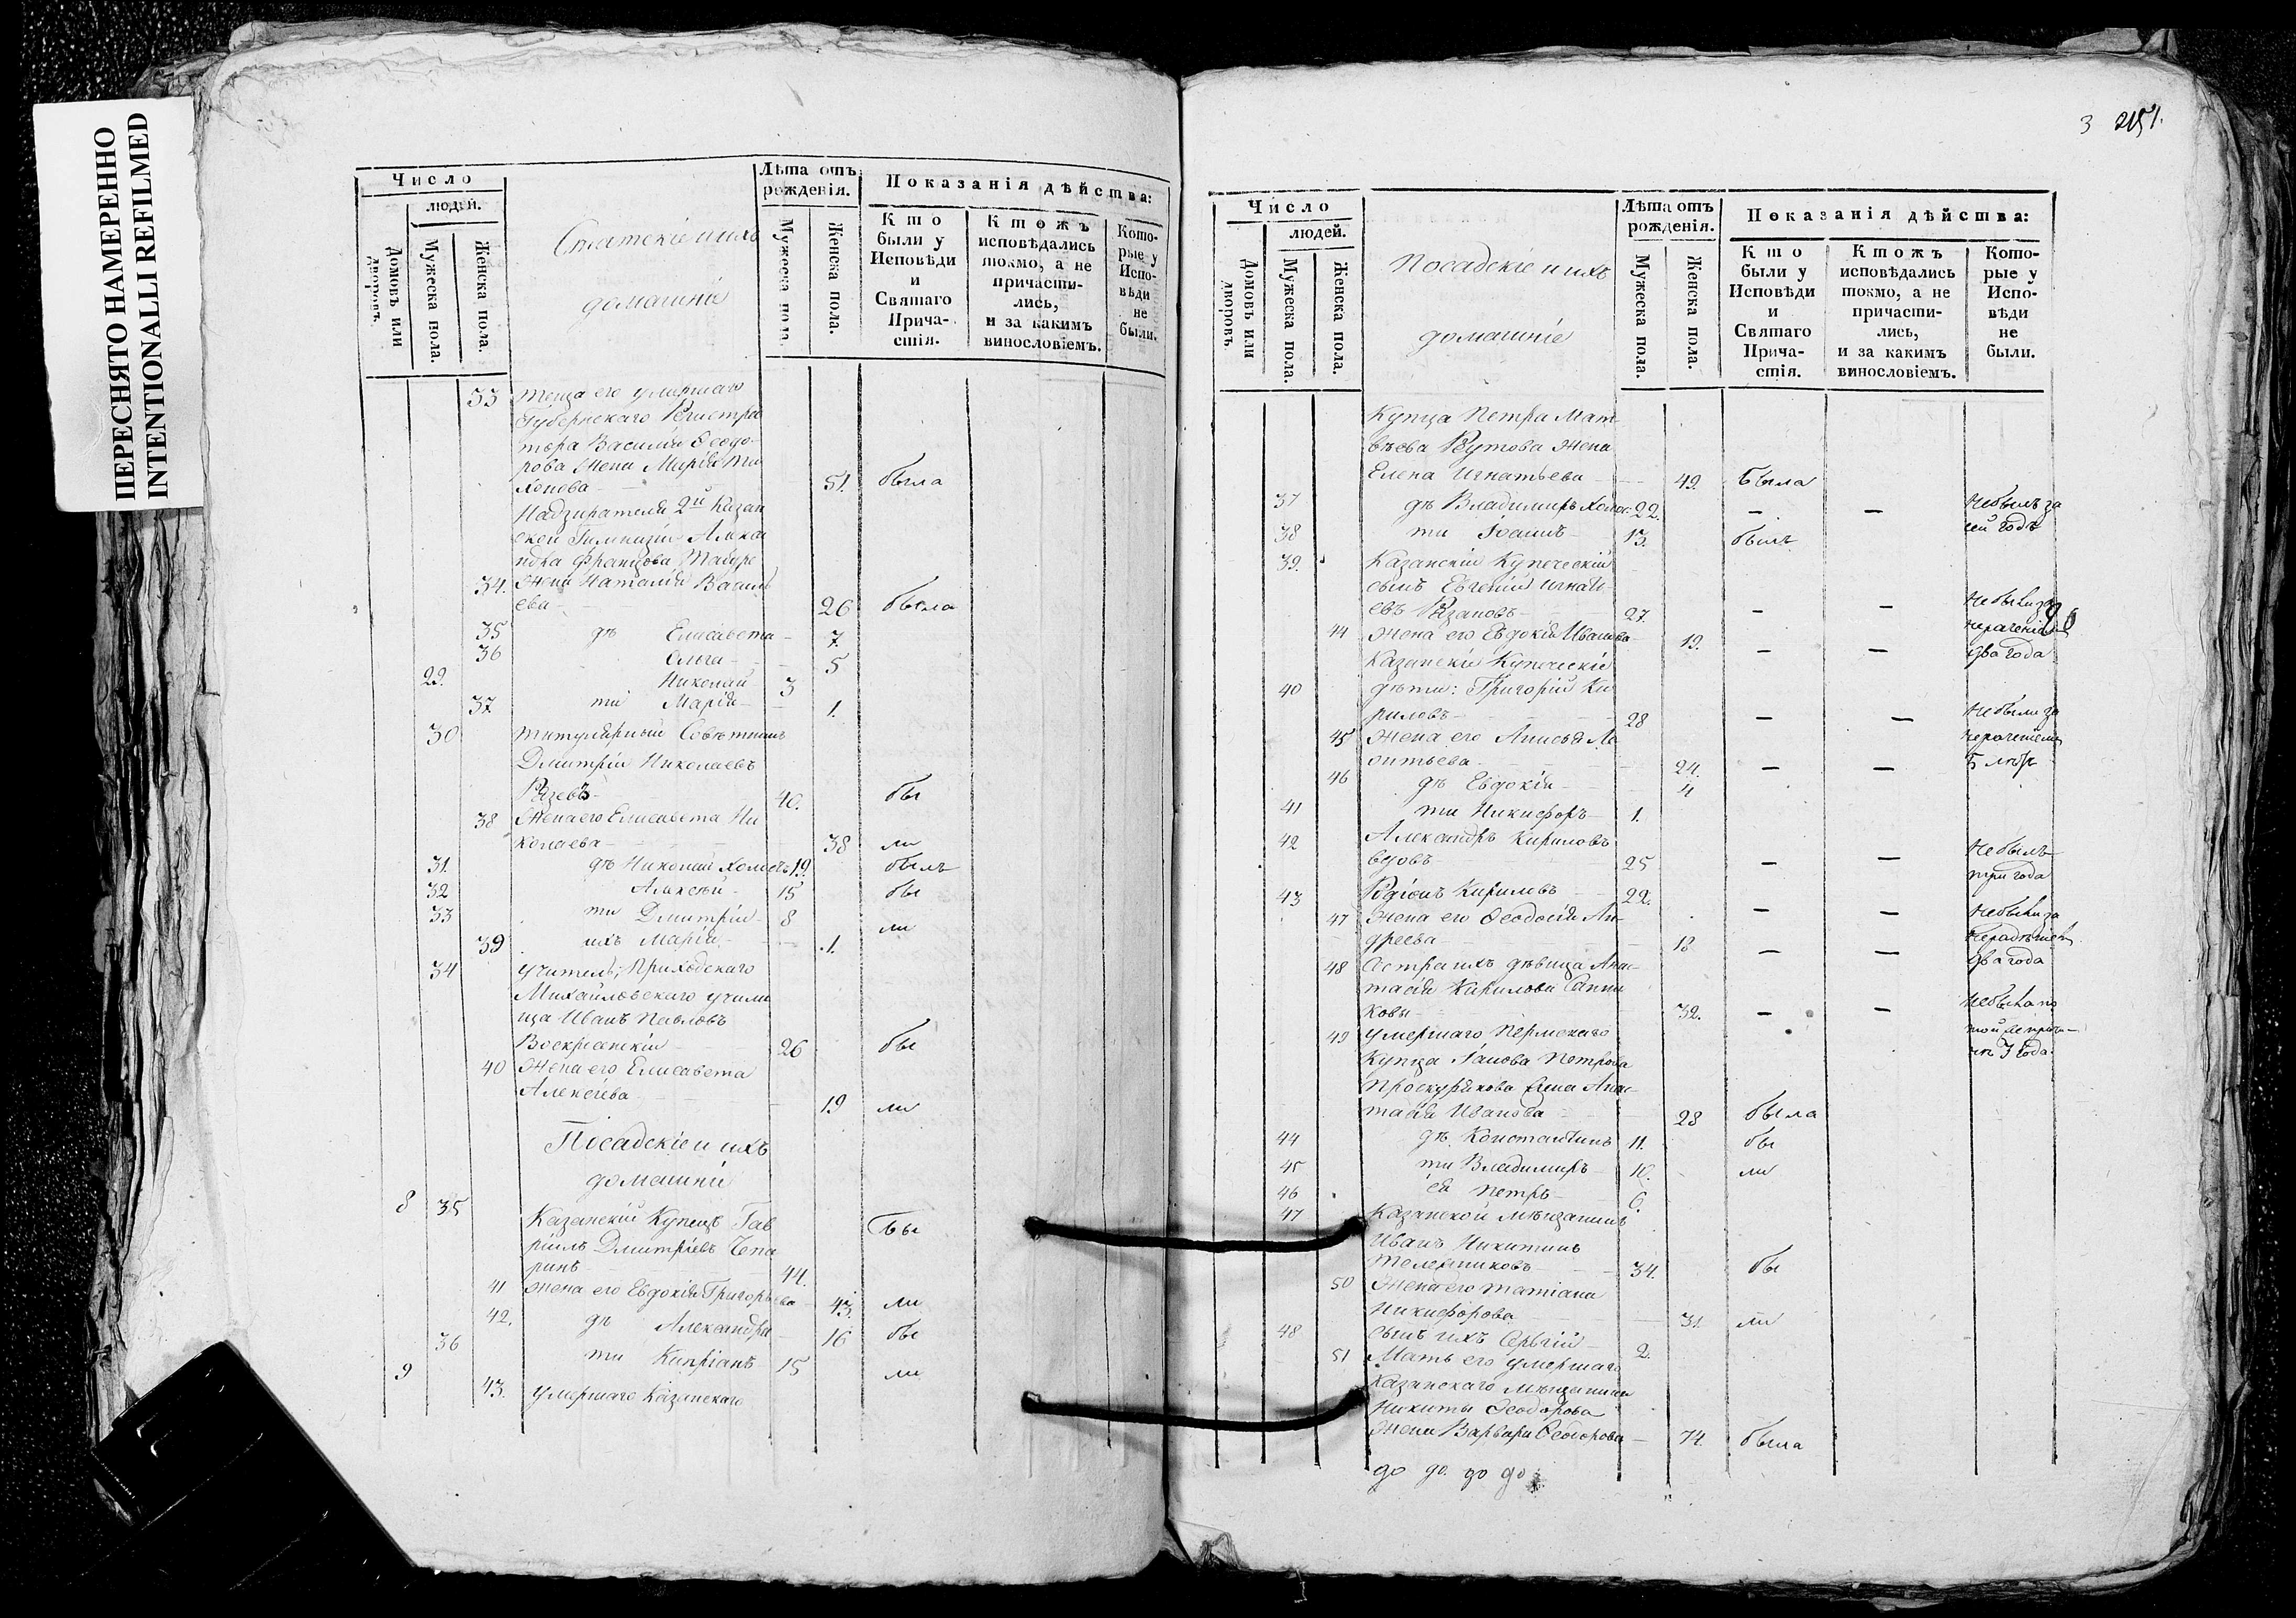 ПЕРЕСНЯТО НАМЕРЕННО
INTENTIONALLI REFILMED
Число
людей.
Домовъ или дворовъ.
Мужеска пола.
Женска пола.
Статскіе и ихъ
домашніе
Лѣта отъ рожденія.
Мужеска пола.
Женска пола.
Показанія дѣйства:
Кто были у Исповѣди и Святаго Причастія.
Ктожъ исповѣдались токмо, а не причастились, и за какимъ винословіемъ.
Которые у Исповѣди не были.
33 теща его умершаго
Губернскаго Регистра
тора Василія Ѳеодо-
рова жена Марія Ти
хонова 51. была
Надзирателя 2й Казан
ской Гимназіи Алекса
ндра Францова
34. жена Наталія Василь
ева 26 была
35 дѣ Елисавета 7.
36 Ольга 5
29. Николай 3
37 ти Марія 1.
30 титулярный Совѣтникъ
Дмитрій Николаевъ
40. бы
38 Жена его Елисавета Ни
колаева 38 ли
31. дѣ Николай холостъ 19. былъ
32 Алексѣй 15 бы
33 ти Дмитрій 8 ли
39 ихъ Марія 1.
34 учитель Приходскаго
Михайловскаго учили
ща Иванъ Павловъ
Воскресенскій 26 бы
40 Жена его Елисавета
Алексѣева 19 ли
Посадскіе и ихъ
домашніи
8 35 Казанскій Купецъ Гав
ріилъ Дмитріевъ Чепа
ринъ 44. бы
41 жена его Евдокія Григорьева 43. ли
42. дѣ Александра 16 бы
36 ти Кипріанъ 15 ли
9 43. умершаго Казанскаго
3 251.
Число
людей.
Домовъ или дворовъ.
Мужеска пола.
Женска пола.
Посадскіе и ихъ
домашніе
Лѣта отъ рожденія.
Мужеска пола.
Женска пола.
Показанія дѣйства:
Кто были у Исповѣди и Святаго Причастія.
Ктожъ исповѣдались токмо, а не причастились, и за какимъ винословіемъ.
Которые у Исповѣди не были.
Купца Петра Мат
вѣева жена
Елена Игнатьева 49. была
37 дѣ Владимиръ холос: 22. — — Небылъ за
38 ти Іоаннъ 13. былъ сей годъ
39. Казанскій Купеческій
сынъ Евгеній Игнать-
евъ Рязановъ 27. — — Небыли за
44 Жена его Евдокія Иванова 19. — — нераченіемъ
два года
Казанскіе Купеческіе
40 дѣти: Григорій Ки
риловъ 28 — — Небыли за
45 жена его Анисья Ле нераченіемъ
онтьева 24. — — 5 лѣтъ
46 дѣ Евдокія 4
41 ти Никифоръ 1.
42 Александръ Кириловъ
вдовъ 25 — — Небылъ
три года
43 Родіонъ Кириловъ 22. — — Небыли за
47 жена его Ѳеодосія Ан-
дреева 18 — — два года
48 Сестра ихъ дѣвица Анас-
тасія Кирилова
32. — — Небыла по
той же причи-
нѣ 3 года
49 умершаго Пермскаго
Купца Іакова Петрова
Проскурякова жена Анас-
тасія Иванова 28 была
44 дѣ Константинъ 11. бы
45 ти Владимиръ 10. ли
46 ея Петръ 6.
47 Казанской мѣщанинъ
Иванъ Никитинъ
34. бы
50 Жена его Татіана
Никифорова 31 ли
48 сынъ ихъ Сергій 2.
51 Мать его умершаго
Казанскаго мѣщанина
Никиты Ѳеодорова
жена Варвара Ѳеодорова 74. была
до до. до до